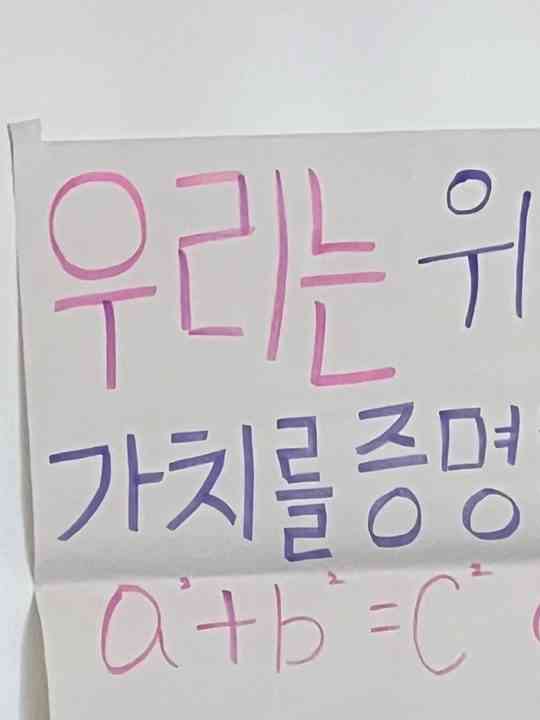 우리는 위
가치를 증명
a²+b²=c²